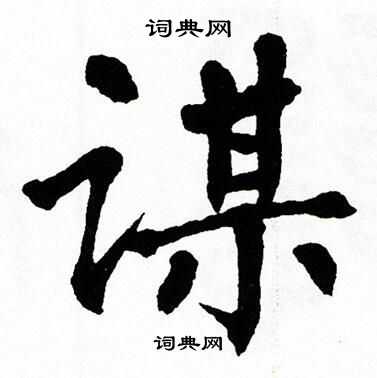 词典网
谋
词典网